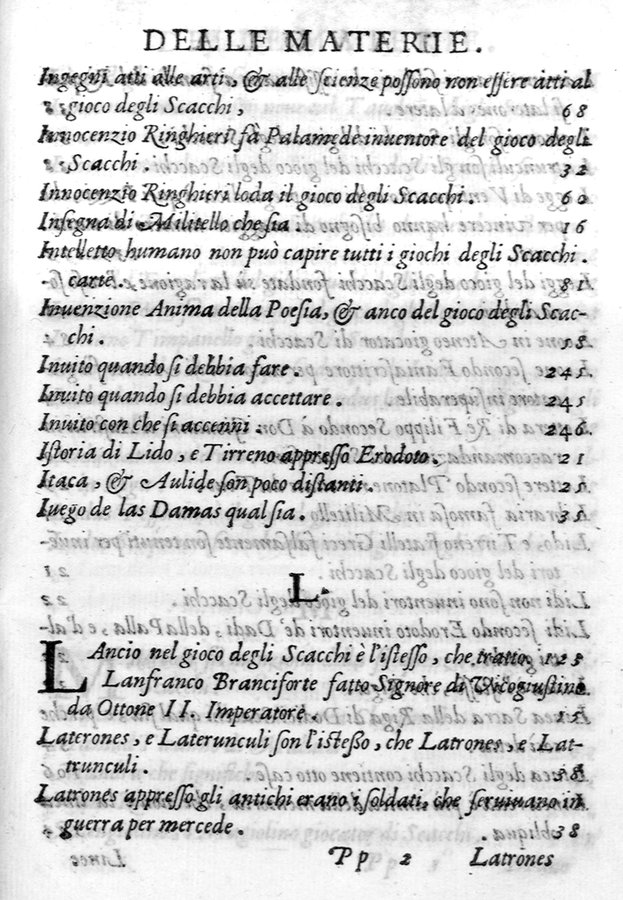 DELLE MATERIE.
Ingegni atti alle arti, & alle scienze possono non essere atti al
gioco degli Scacchi, 68
Innocenzio Ringhieri fà Palamede inuentore del gioco degli
Scacchi. 32
Innocenzio Ringhieri loda il gioco degli Scacchi. 60
Insegna di Militello che sia. 16
Intelletto humano non può capire tutti i giochi degli Scacchi.
carte. 81
Inuenzione Anima della Poesia, & anco del gioco degli Scac-
chi.
Inuito quando si debbia fare. 245.
Inuito quando si debbia accettare. 245
Inuito con che si accenni. 246.
Istoria di Lido, e Tirreno appresso Erodoto. 21
Itaca, & Aulide son poco distanti.
Iuego de las Damas qual sia.
L.
LAncio nel gioco degli Scacchi è l'istesso, che tratto. 125
Lanfranco Branciforte fatto Signore di
da Ottone II. Imperatore. 13
Laterones, e Laterunculi son l'istesso, che Latrones, e Lat-
trunculi.
Latrones appresso gli antichi erano i soldati, che seruiuano in
guerra per mercede. 38
Pp 2 Latrones